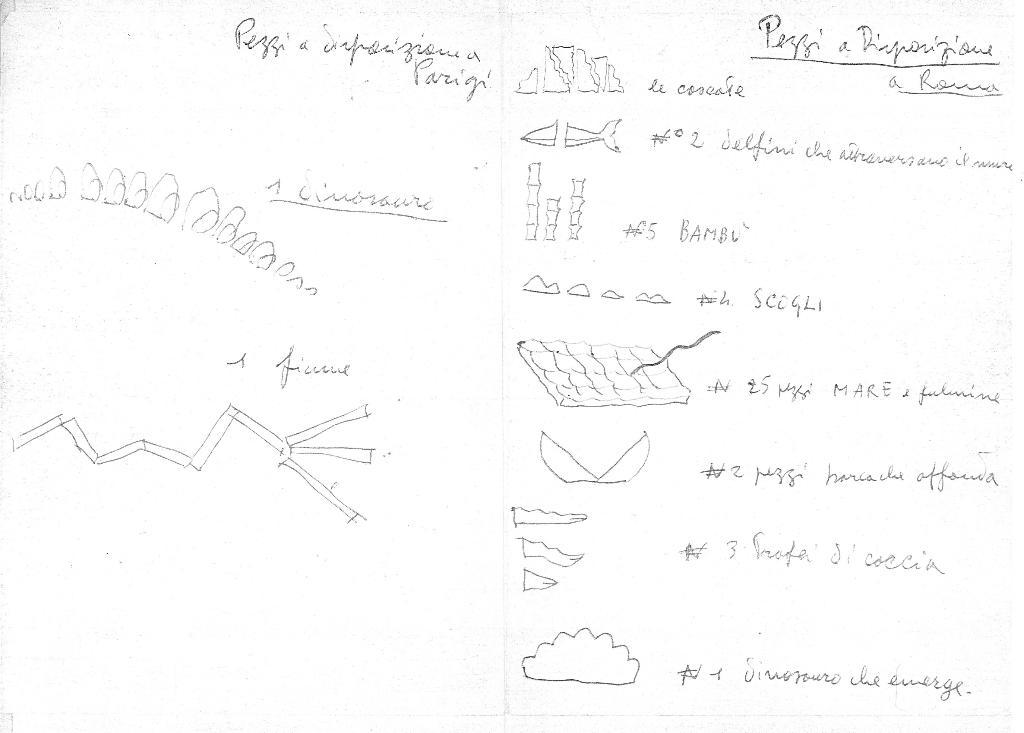 Pezzi a disposizione a
Parigi
1 dinosauro
1 fiume
Pezzi a Disposizione
a Roma
le cascate
N° 2 delfini che attraversano il mare
N° 5 BAMBÙ
N 4 SCOGLI
N 25 pezzi MARE e fulmine
N 2 pezzi barca che affonda
N 3 Trofei di caccia
N 1 dinosauro che emerge.